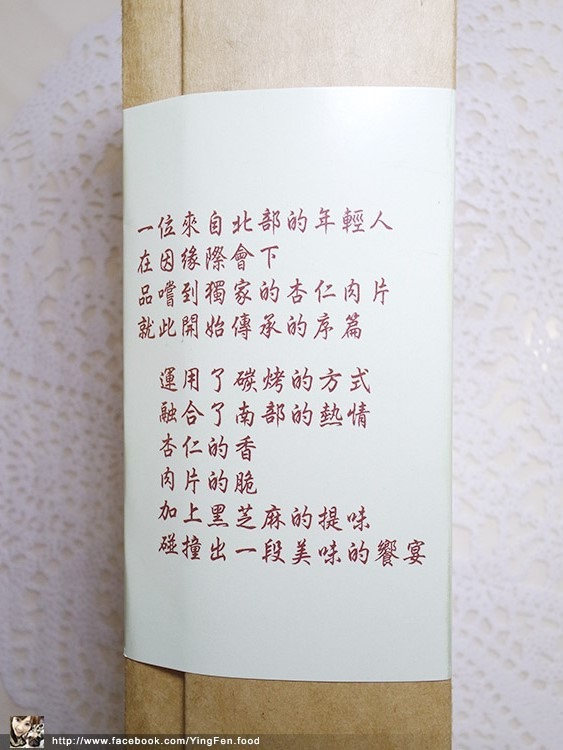 一位來自北部的年輕人
在因緣際會下
品嚐到獨家的杏仁肉片
就此開始傳承的序篇
運用了碳烤的方式
融合了南部的熱情
杏仁的香
肉片的脆
加上黑芝麻的提味
碰撞出一段美味的饗宴
http://www.facebook.com/YingFen.food